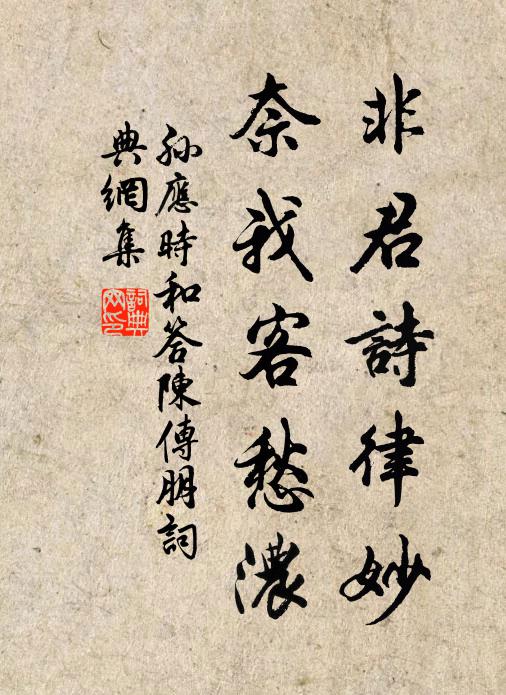 非君詩律妙
奈我客愁濃
孫應時和答陳傅朋詞
典網集
詞典网印